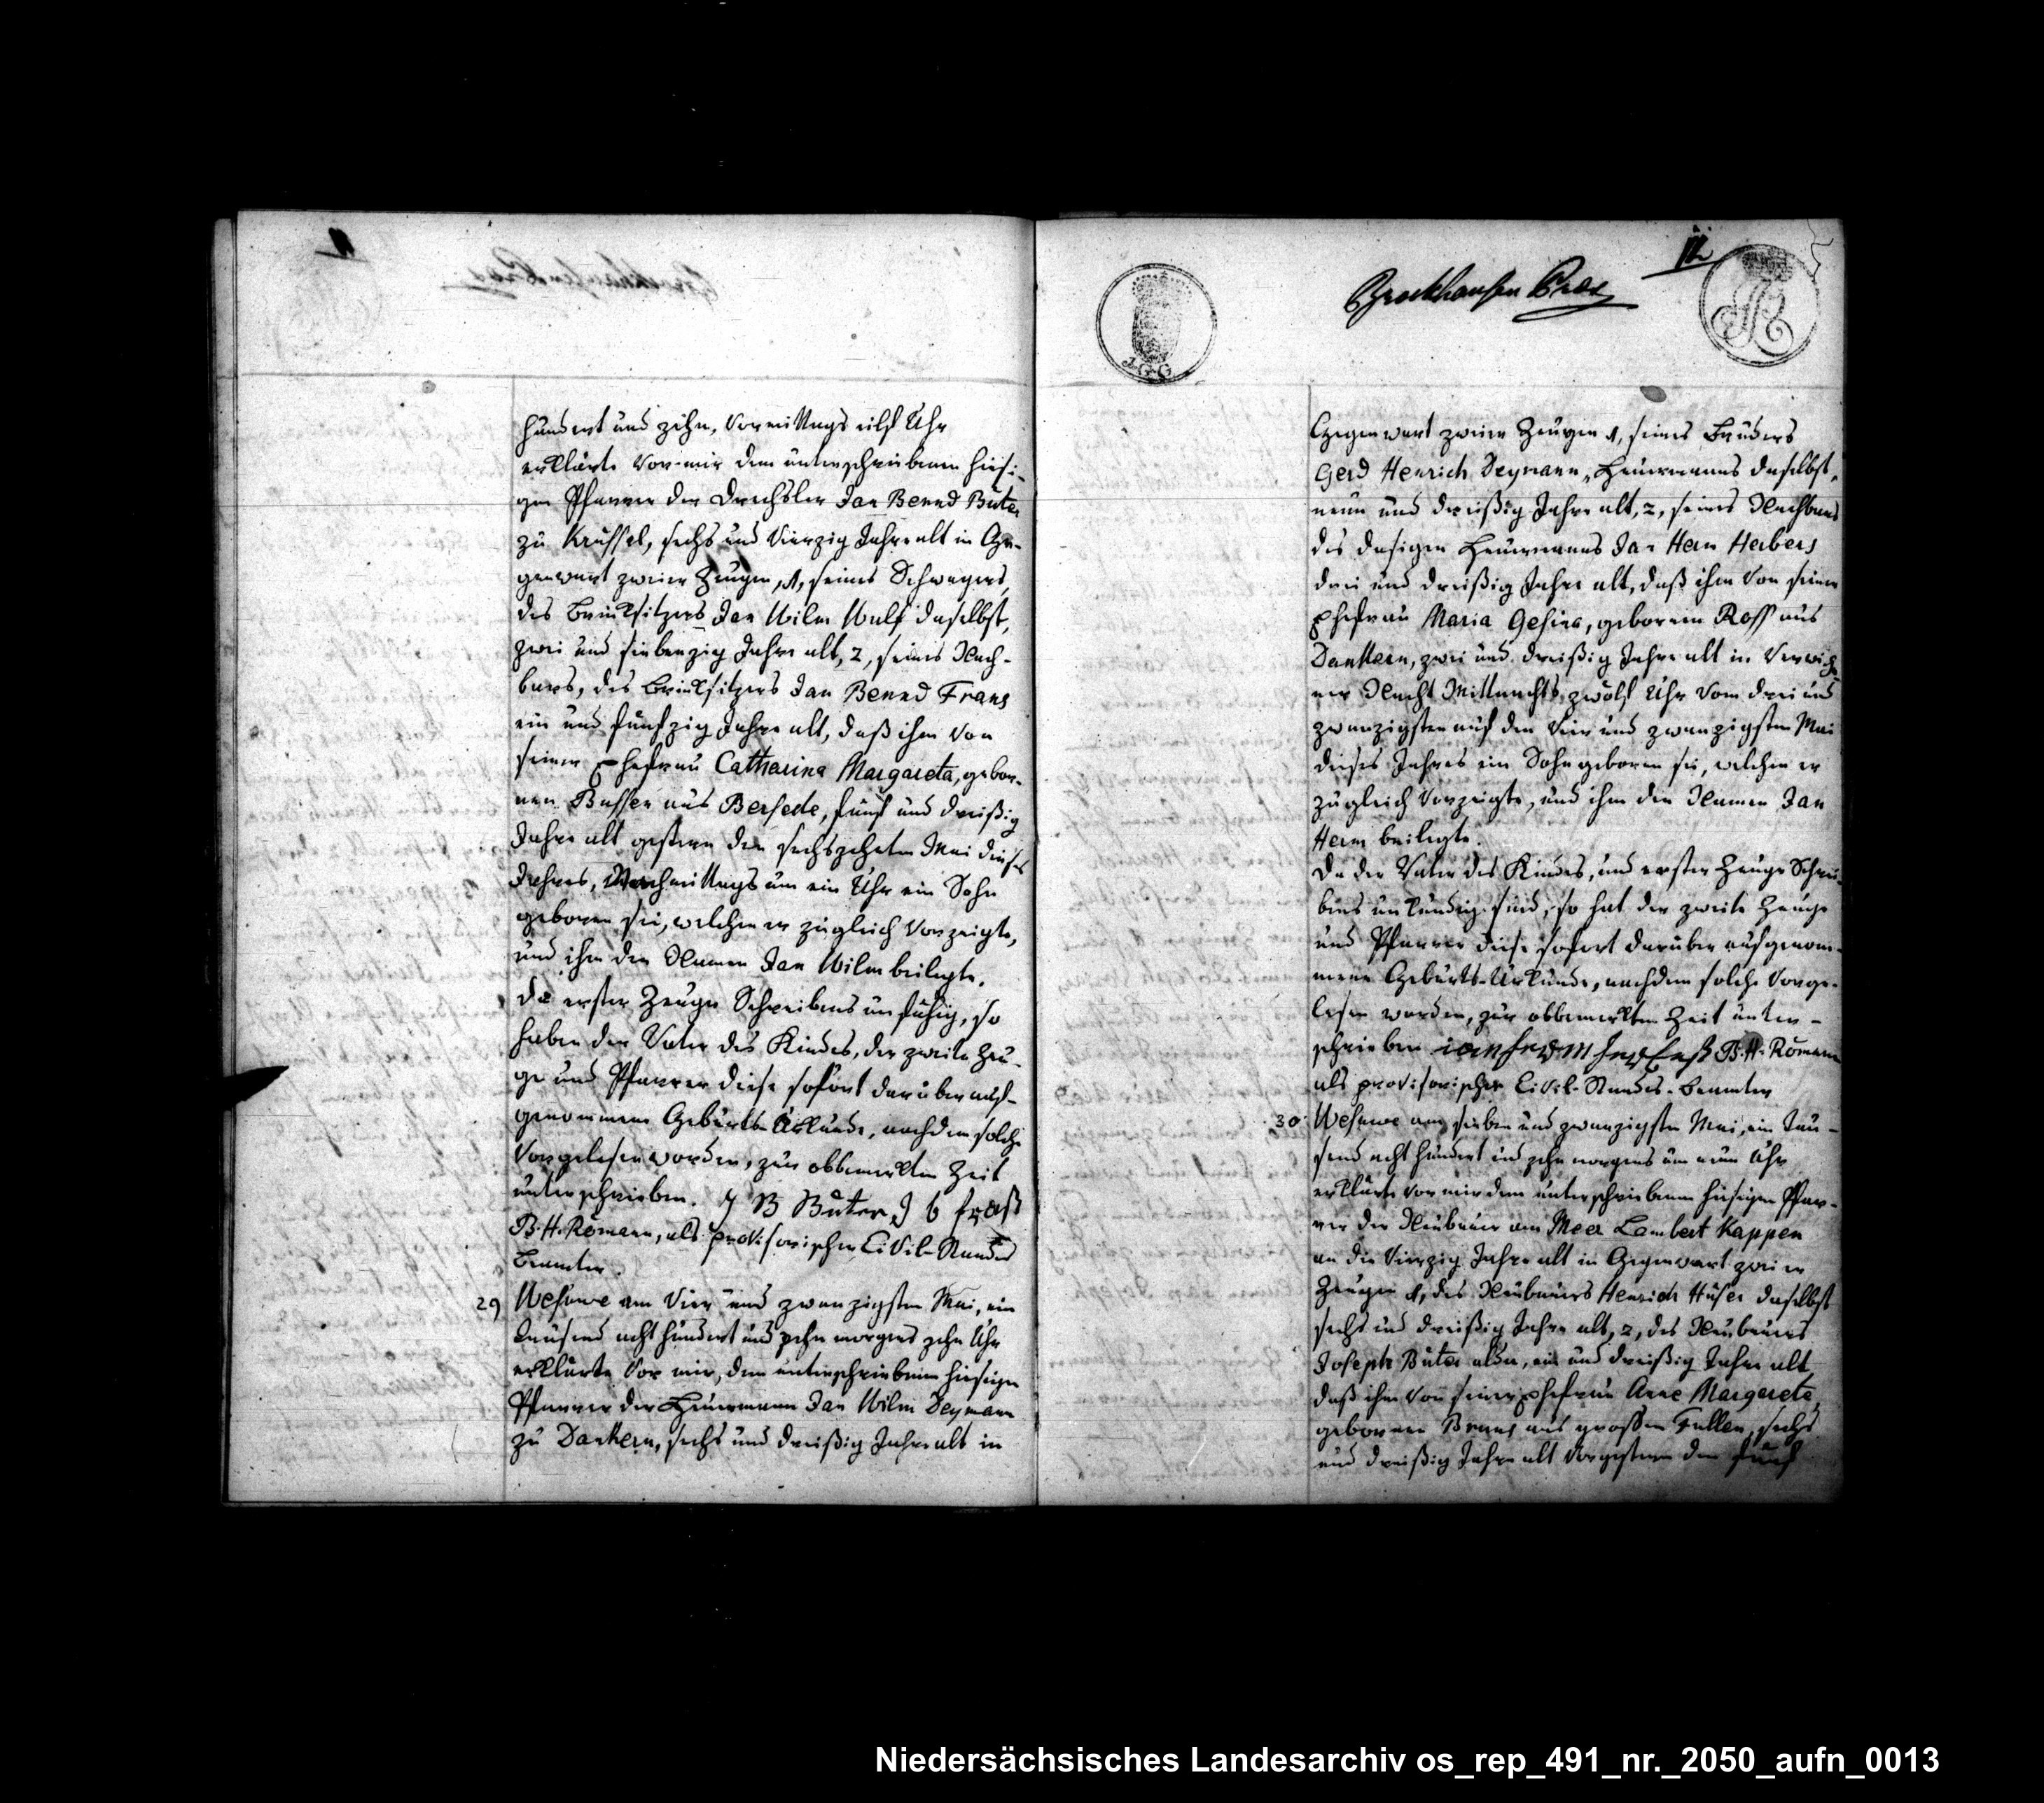 hundert und zehn, Vormittags eilf Uhr
erklärte vor mir dem unterschriebenen hiesi-
gen Pfarrer der Drechsler Jan Bernd Büter
zu Krüssel, sechs und vierzig Jahre alt in Ge-
genwart zweier Zeugen, 1, seines Schwagers,
des Brinksitzers Jan Wilm Wulf daselbst,
zwei und siebenzig Jahre alt, 2, seines Nach-
bars, des Brinksitzers Jan Bernd Frans
ein und fünfzig Jahre alt, daß ihm von
seiner Ehefrau Catharina Margareta, gebor-
nen Bussen aus Bersede, fünf und dreißig
Jahre alt gestern den sechszehnten Mai dieses
Jahres, Nachmittags um ein Uhr ein Sohn
geboren sei, welchen er zugleich vorzeigte,
und ihm den Namen Jan Wilm beilegte.
Da erster Zeuge Schreibens unfähig, so
haben der Vater des Kindes, der zweite Zeu-
ge und Pfarrer diese sofort darüber auf-
genommene Geburts-Urkunde, nachdem solche
vorgelesen worden, zur obbemerkten Zeit
unterschrieben. J B Büter J b frass
B. H. Römann, als provisorischer Civil-Standes
Beamter.
29 Wesuwe am vier und zwanzigsten Mai, ein
tausend acht hundert und zehn morgens zehn Uhr
erklärte vor mir, dem unterschriebenen hiesigen
Pfarrer der Heuermann Jan Wilm Deymann
zu Dankern, sechs und dreißig Jahre alt in
12
Brockhausen
J.G.G.
Gegenwart zweier Zeugen 1, seines Bruders
Gerd Henrich Deymann, Heuermanns daselbst,
neun und dreißig Jahre alt, 2, seines Nachbars
des dasigen Heuermanns Jan Herm Herbers
drei und dreißig Jahre alt, daß ihm von seiner
Ehefrau Maria Gesina, geboren Ross aus
Dankern, zwei und dreißig Jahre alt in verwiche-
ner Nacht Mitternachts zwölf Uhr vom drei und
zwanzigsten auf den vier und zwanzigsten Mai
dieses Jahres ein Sohn geboren sei, welchen er
zugleich vorzeigte, und ihm den Namen Jan
Herm beilegte.
Da der Vater des Kindes, und erster Zeuge Schrei-
bens unkundig sind, so hat der zweite Zeuge
und Pfarrer diese sofort darüber aufgenom-
mene Geburts-Urkunde, nachdem solche vorge-
lesen worden, zur obbemerkten Zeit unter-
schrieben B. H. Römann
als provisorischer Civil-Standes-Beamter
30 Wesuwe am sieben und zwanzigsten Mai, ein tau-
send acht hundert und zehn morgens um neun Uhr
erklärte vor mir dem unterschriebenen hiesigen Pfar-
rer der Neubauer am Meer Lambert Kappen
an die vierzig Jahre alt in Gegenwart zweier
Zeugen 1, des Neubauers Henrich Hüser daselbst
sechs und dreißig Jahre alt, 2, des Neubauers
Joseph Büter alda, ein und dreißig Jahre alt
daß ihm von seiner Ehefrau Anne Margareta,
gebornen Bruns aus grossen Fullen, sechs
und dreißig Jahre alt vorgestern den fünf
Niedersächsisches Landesarchiv os_rep_491_nr._2050_aufn_0013